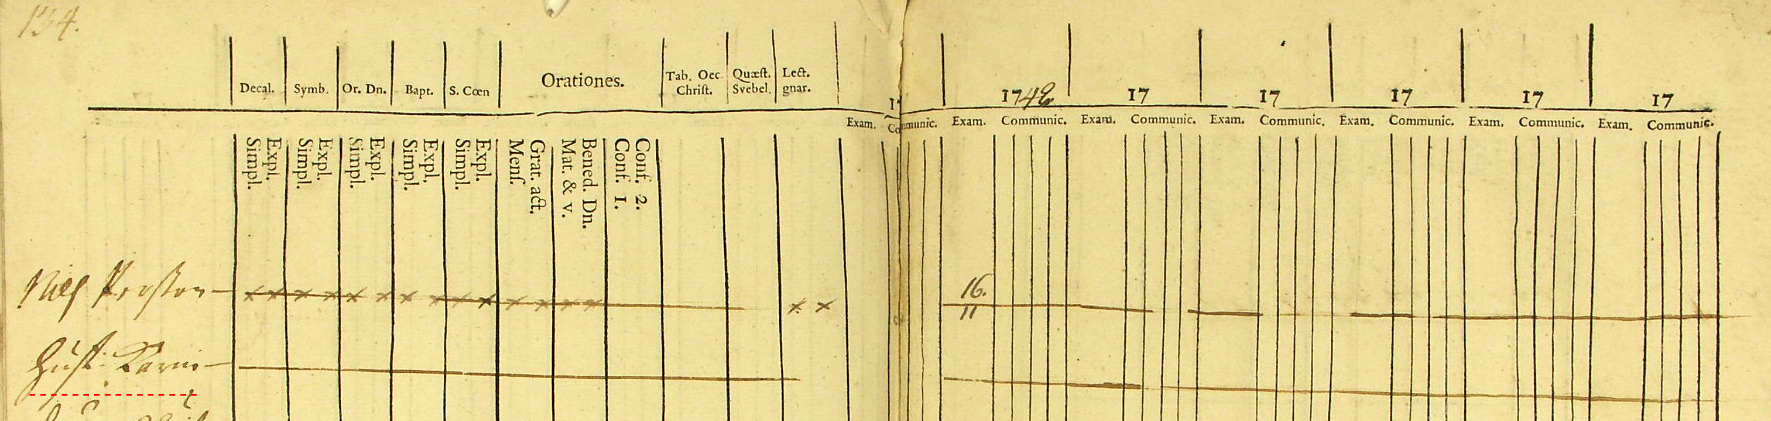 134.
Decal. Symb. Or. Dn. Bapt. S. Cœn Orationes. Tab. Oec. Christ. Quæst. Svebel. Lect. gnar.
17 1748 17 17 17 17 17
Exam. Co mmunic. Exam. Communic. Exam. Communic. Exam. Communic. Exam. Communic. Exam. Communic. Exam. Communic.
Expl. Simpl. Expl. Simpl. Expl. Simpl. Expl. Simpl. Expl. Simpl. Grat. act. Mens. Bened. Dn. Mat. & v. Conf. 2. Conf. 1.
Nils Persson x x x x x x x x x x x x x x x x 16.
11
Hust. Karin